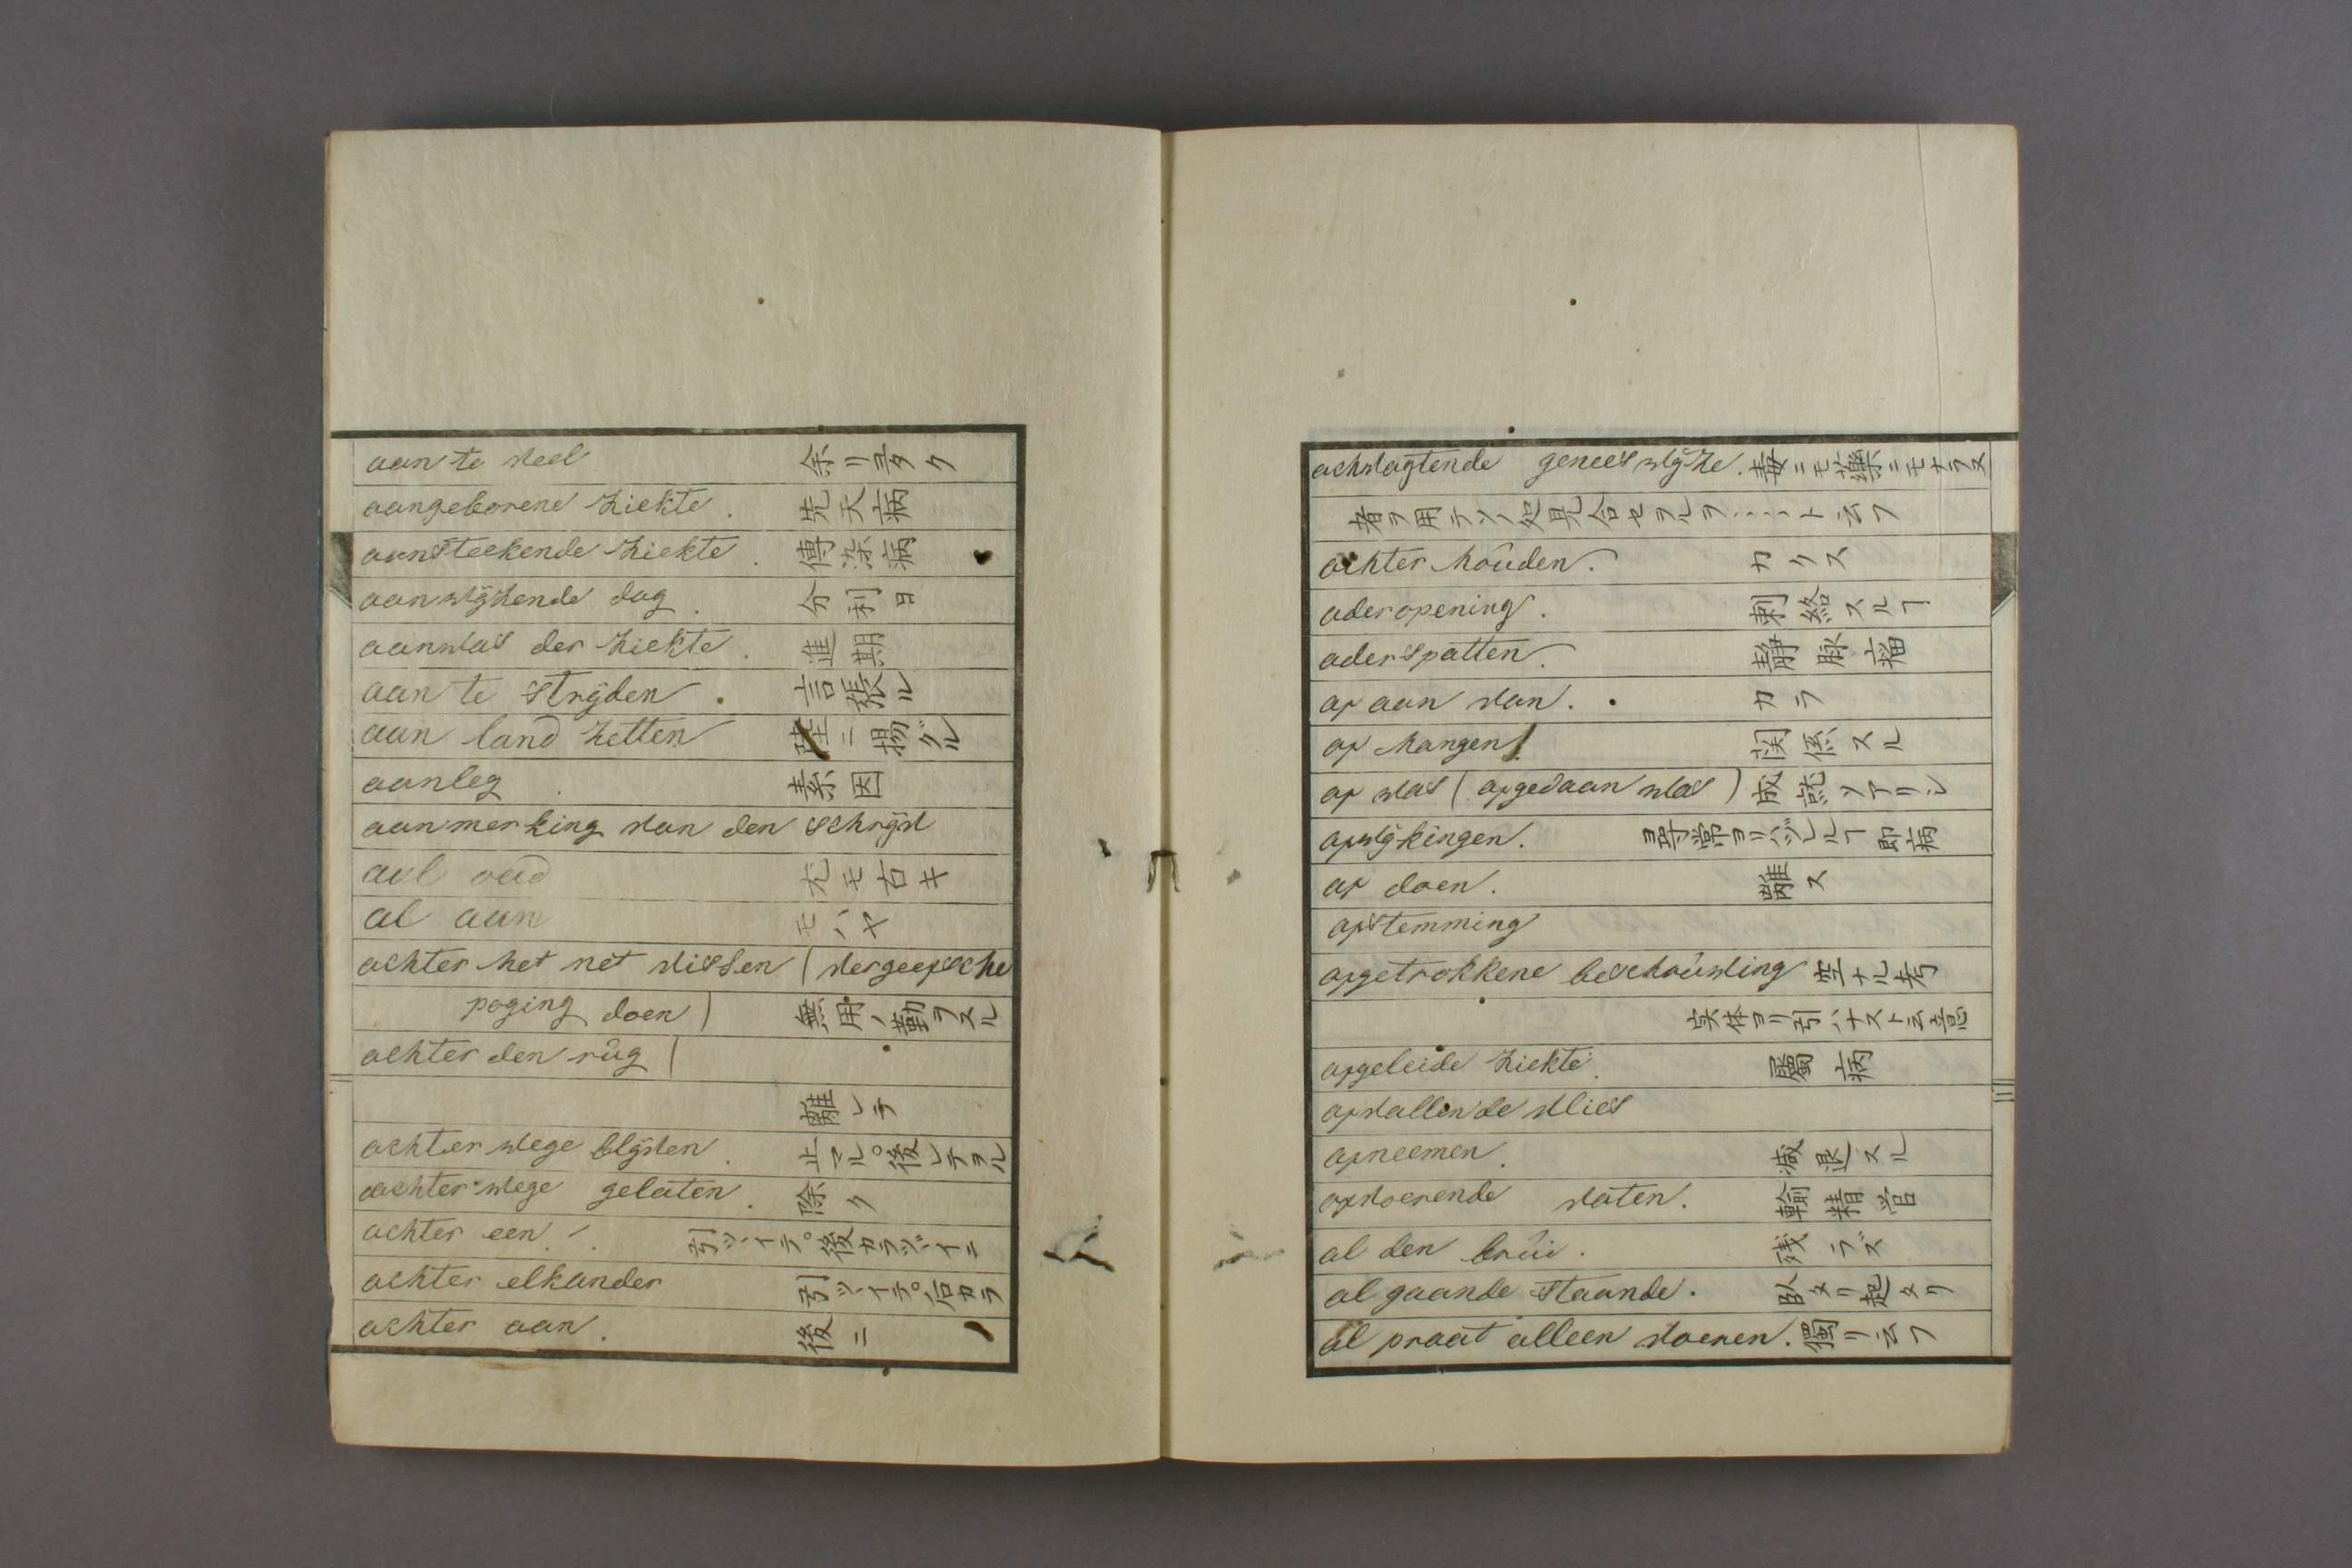 aan te veel 余リ多ク
aangeborene ziekte. 先天病
aansteekende ziekte. 傳染病
aanwijzende dag. 分利日
aanwas der ziekte. 進期
aan te strijden. 言張ル
aan land zetten 陸ニ揚グル
aanleg. 素因
aanmerking van den schrijv
aal oud 尤モ古キ
al aan モハヤ
achter het net vissen (vergeefsche
poging doen) 無用ノ勤ヲスル
achter den rŭg (
離レテ
achterwege blijven. 止マル。後レテヲル
achterwege gelaten. 除ク
achter een. 引ツイテ。後カラツイテ
achter elkander 引ツイテ。后カラ
achter aan. 後ニ
achwagtende geneeswijze. 毒ニモ藥ニモナラヌ
者ヲ用テソノ処見合セヲルヲ……ト云フ
achter hoŭden. カクス
aderopening. 刺絡スルヿ
aderspatten. 静脉瘤
af aan van. カラ
af hangen. 関係スル
af was (afgedaan was) 成就シアリシ
afwijkingen. 尋常ヨリハヅレルヿ即病
af doen. 離ス
afstemming
afgetrokkene beschoŭwling 空ナル考
実体ヨリ引ハナスト云意
afgeleide ziekte. 屬病
afvallende vlies
afneemen. 減退スル
afvoerende vaten. 輸精管
al den brŭi. 残ラズ
al gaande staande. 臥タリ起タリ
al praat alleen voeren. 獨リ云フ